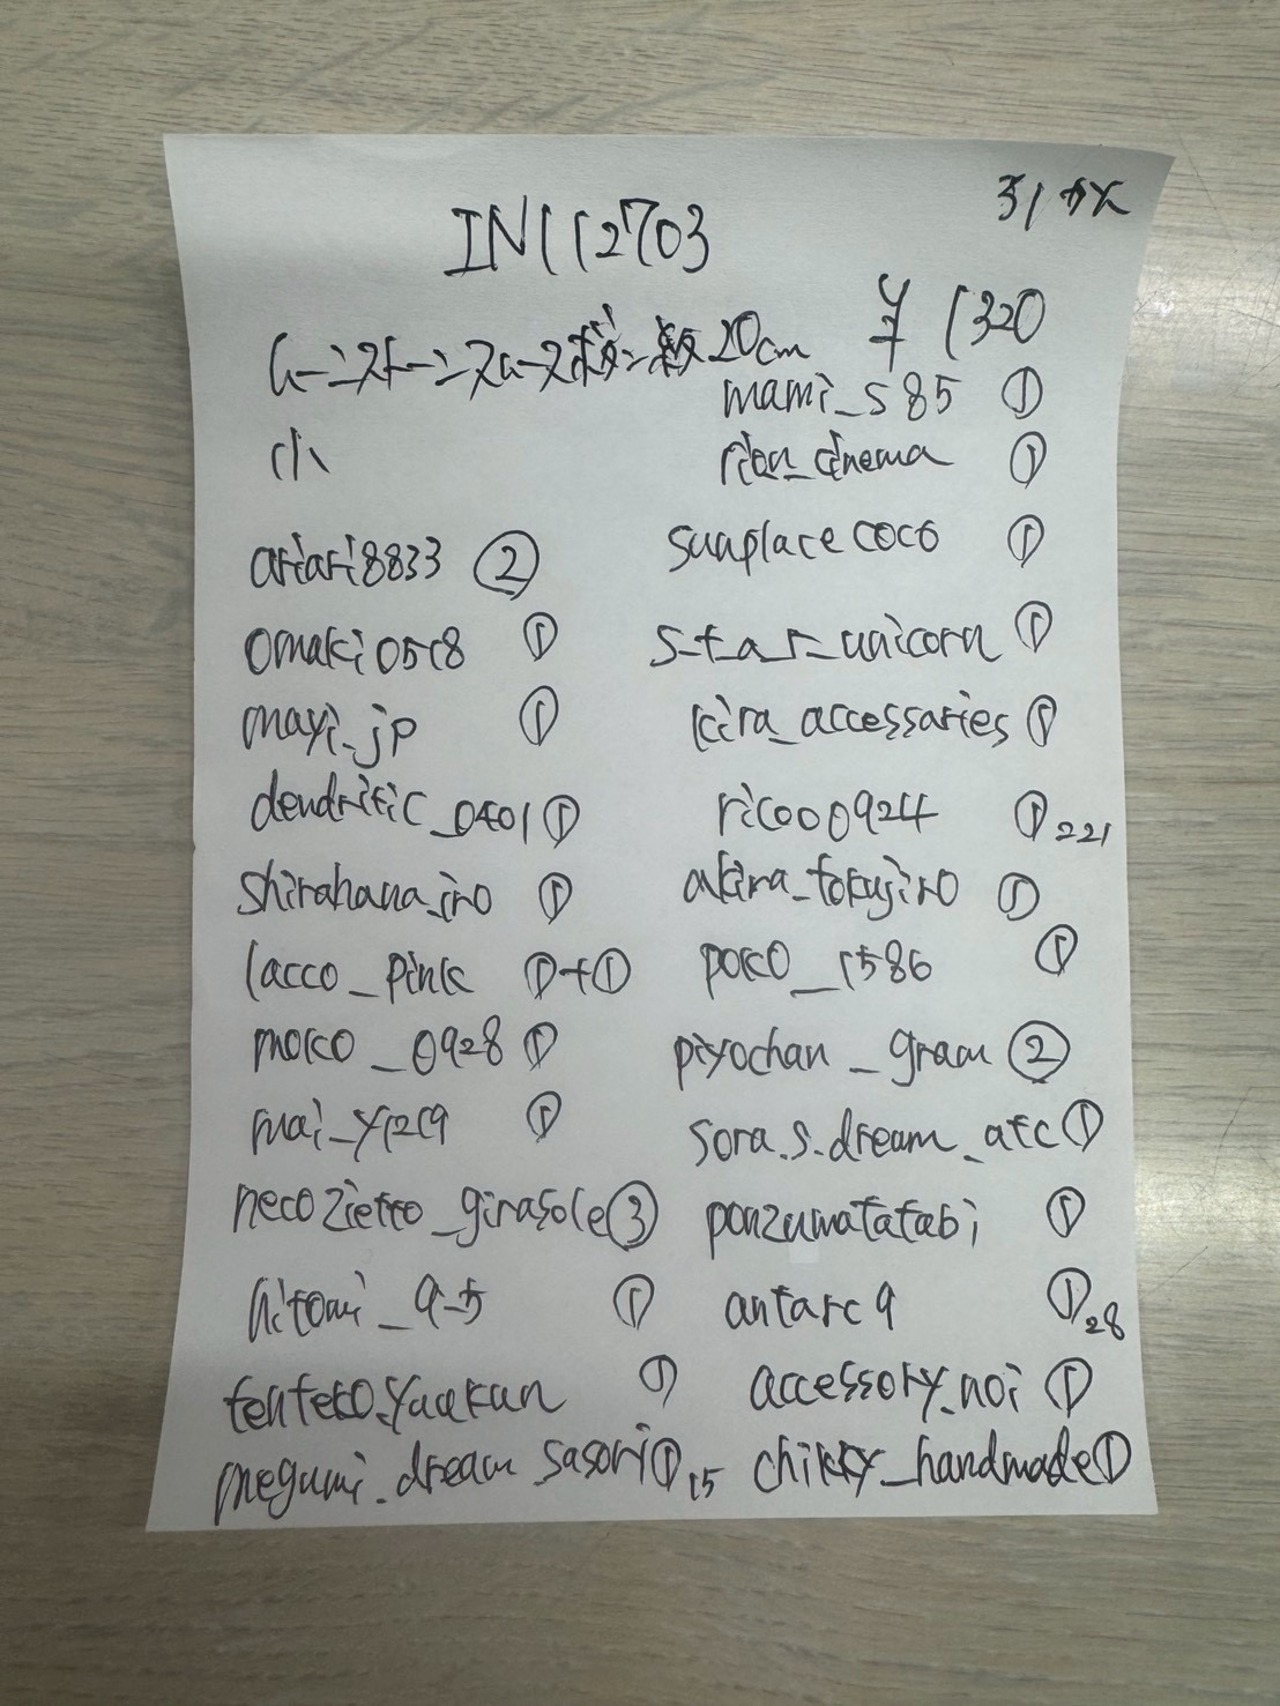 IN112703
31枚
ムーンストーンスムース様々数20cm ¥1320
小
ariari8833 ②
omaki0518 ①
mayi_jp ①
dendritic_0401 ①
shirahana_iro ①
lacco_pink ①+①
moko_0928 ①
mai_y1219 ①
necozietto_girasole ③
hitomi_9_5 ①
tenteko.yaakun ①
megumi_dream sasori ① 15
mami_s85 ①
rion_cinema ①
sunplacecoco ①
s_t_a_r_unicorn ①
kira_accessaries ①
ricoo0924 ① 221
akira_tokujiro ①
poko_1586 ①
piyochan_gram ②
sora.s.dream_atc ①
ponzumatatabi ①
antarc9 ① 28
accessory_noi ①
chikky_handmade ①